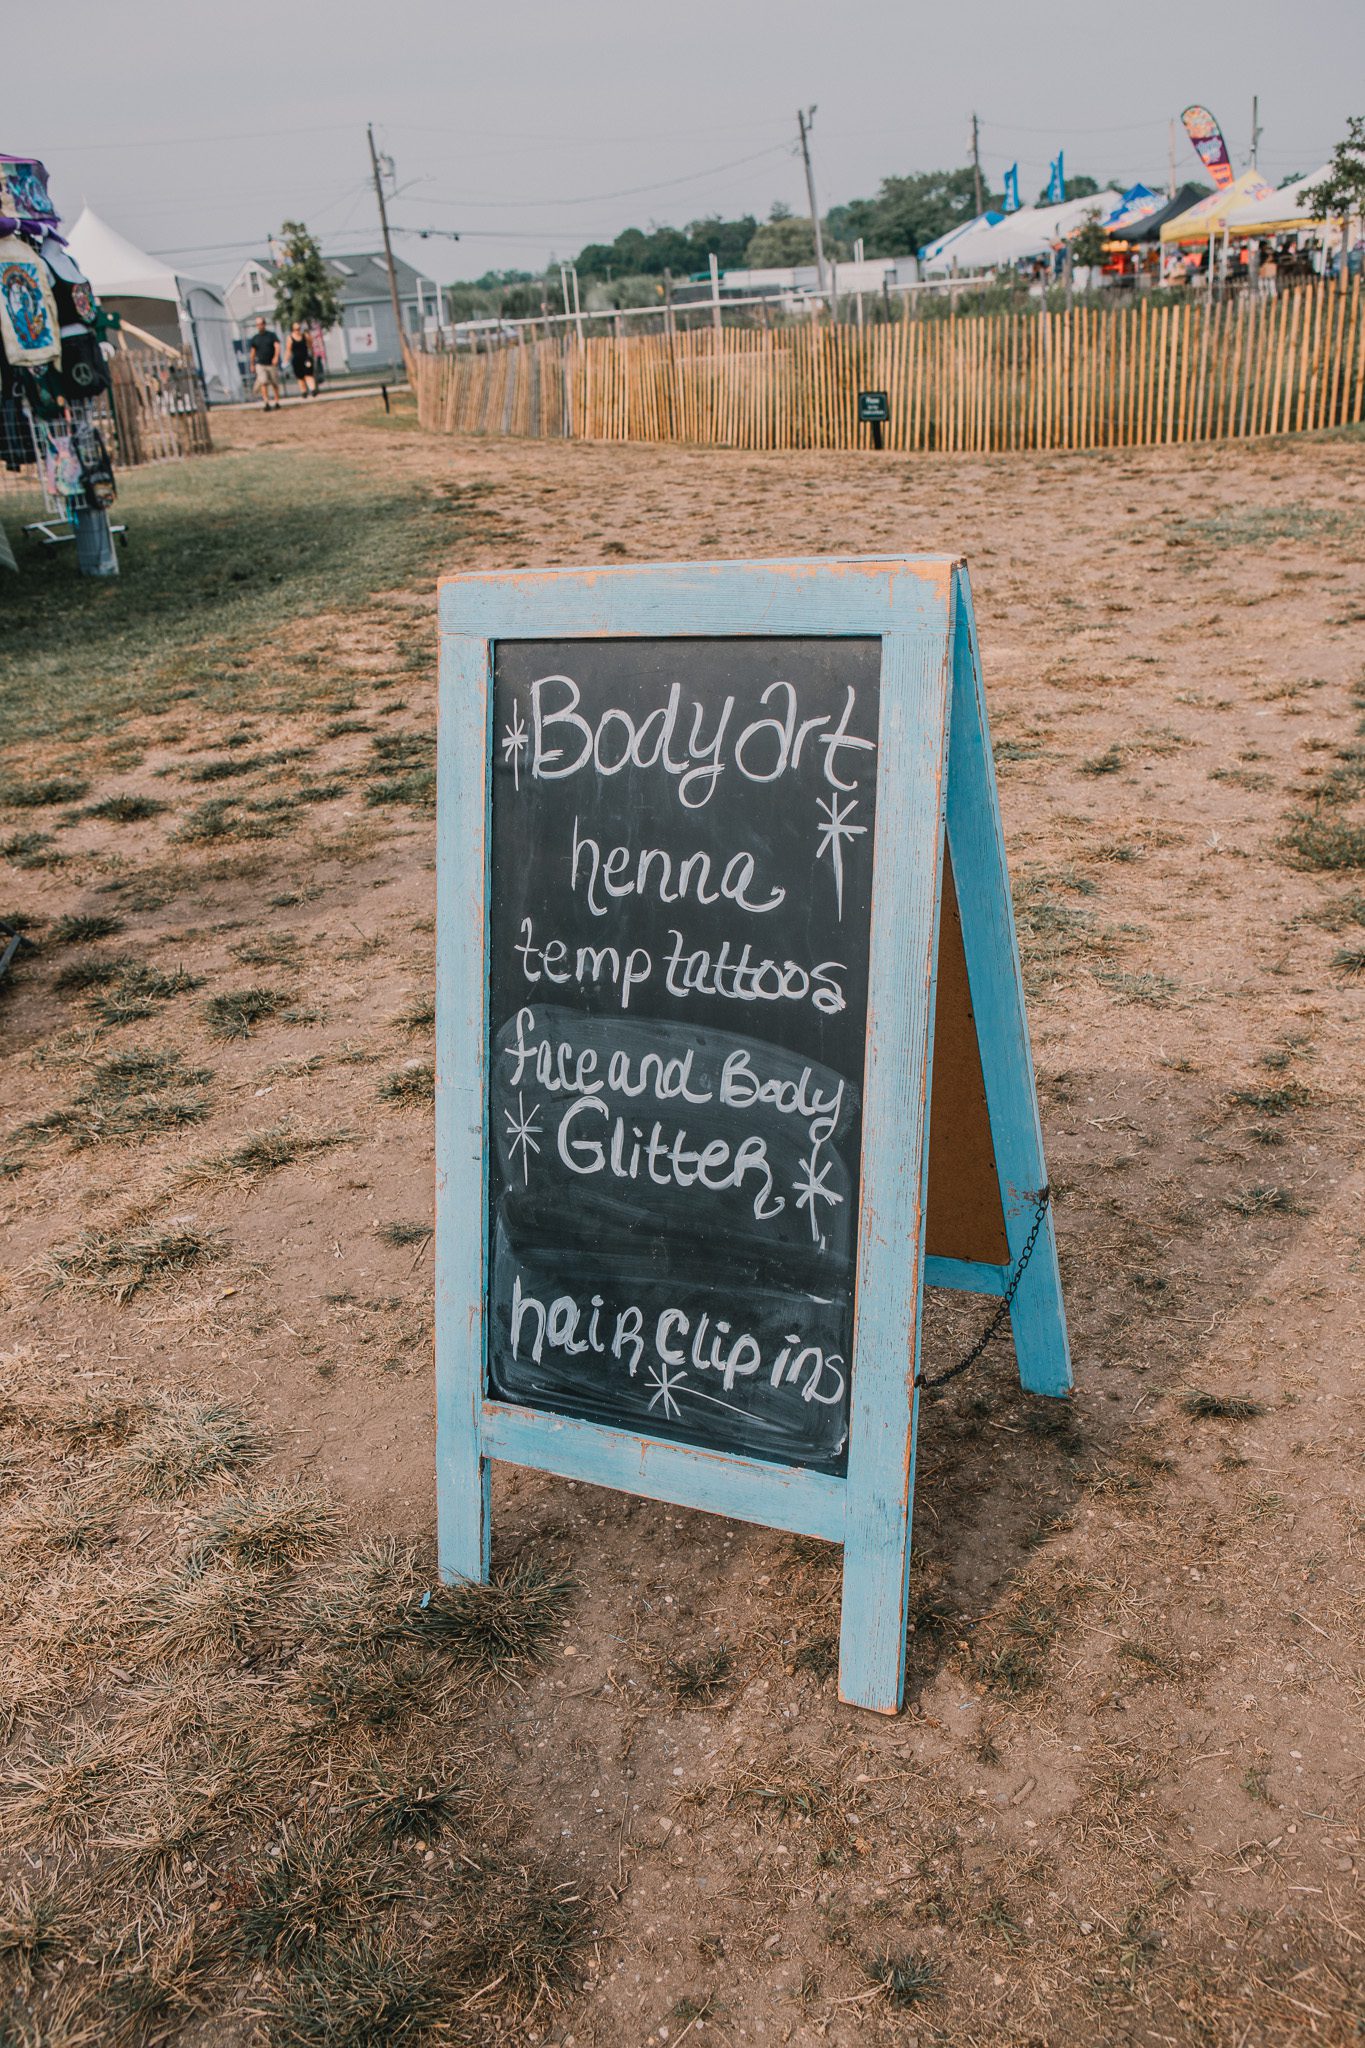 Body art
henna
temp tattoos
face and Body
Glitter
hair clip ins
Please